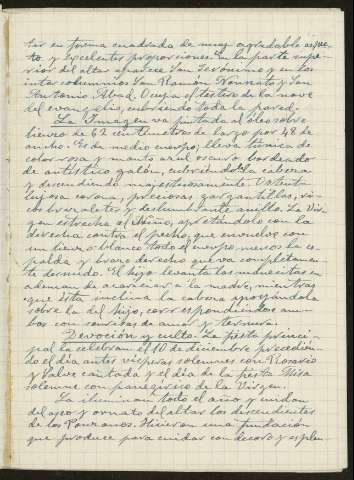 tar en forma cuadrada de muy agradable aspec-
to, y excelentes proporciones. En la parte supe-
rior del altar aparece San Jerónimo y en los
intercolumnios San Ramón Nonnato y San
Antonio Abad. Ocupa el testero de la nave
del evangelio, cubriendo toda la pared.
La Imagen va pintada al óleo sobre
lienzo de 62 centímetros de largo por 48 de
ancho. Es de medio cuerpo, lleva túnica de
color rosa y manto azul oscuro bordeado
de artístico galón, cubriéndole la cabeza
y descendiendo majestuosamente. Ostenta
lujosa corona, preciosas gargantillas, ri-
cos brazaletes y deslumbrante anillo. La Vir-
gen estrecha al Niño, apretándolo con la
derecha contra el pecho, que envuelve con
un lienzo blanco todo el cuerpo menos la es-
palda y brazo derecho que va completamen-
te desnudo. El hijo levanta las manecitas en
ademán de acariciar a la madre, mientras
que ésta inclina la cabeza apoyándola
sobre la del hijo, correspondiéndose am-
bos con sonrisas de amor y ternura.
Devoción y culto. La fiesta princi-
pal la celebran el 10 de diciembre precedien-
do el día antes vísperas solemnes con Rosario
y Salve cantada y el día de la fiesta Misa
solemne con panegírico de la Virgen.
La iluminan todo el año y cuidan
del aseo y ornato del altar los descendientes
de los. Hicieron una fundación
que produce para cuidar con decoro y esplen-